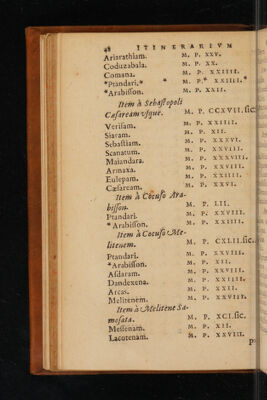 48 ITINERARIVM
Ariarathiam. M. P. XXV.
Coduzabala. M. P. XX.
Comana. M. P. XXIIII.
*Ptandari.* * M. P.* XXIIII.*
*Arabiſſon. M. P. XXII.
Item à Sebaſtopoli
Cæſaream vſque. M. P. CCXVII.ſic.
Veriſam. M. P. XXIIII.
Siaram. M. P. XII.
Sebaſtiam. M. P. XXXVI.
Scanatum. M. P. XXVIII.
Maiandara. M. P. XXXVIII.
Armaxa. M. P. XXVIII.
Eulepam. M. P. XXIIII.
Cæſaream. M. P. XXVI.
Item à Cocuſo Ara-
biſſon. M. P. LII.
Ptandari. M. P. XXVIII.
*Arabiſſon. M. P. XXIIII.
Item à Cocuſo Me-
litenem. M. P. CXLII.ſic.
Ptandari. M. P. XXVIII.
*Arabiſſon. M. P. XII.
Aſdaram. M. P. XXVIII.
Dandexena. M. P. XXIIII.
Arcas. M. P. XXII.
Melitenem. M. P. XXVIII.
Item à Melitene Sa-
moſata. M. P. XCI.ſic.
Meſſenam. M. P. XII.
Lacotenam. M. P. XXVIII.